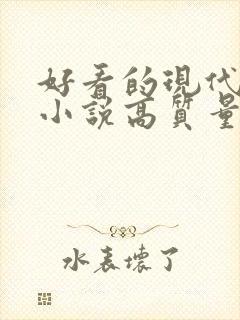 好看的現代
小說高質量
水表壞了